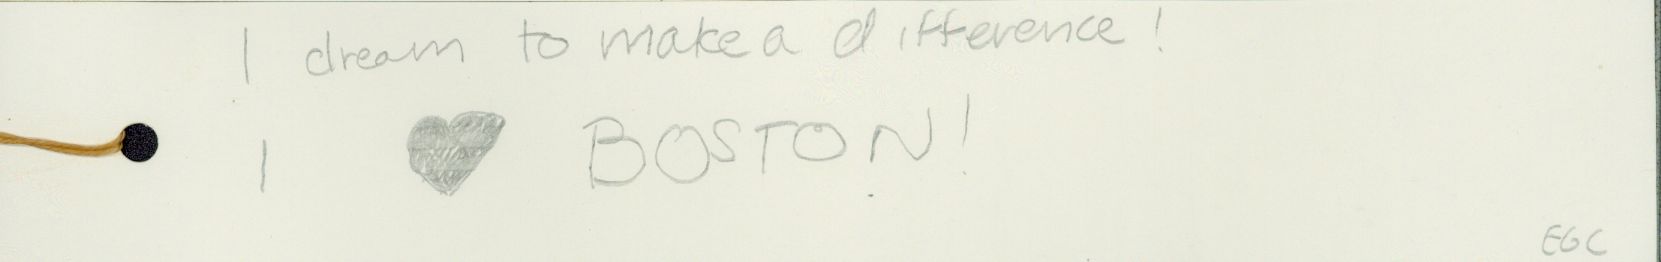 I dream to make a difference!
I ♥ BOSTON!
EGC